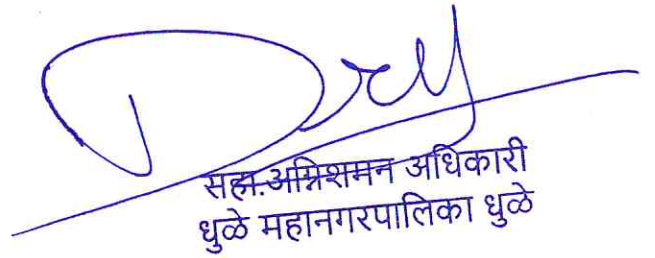 सहा.अग्निशमन अधिकारी
धुळे महानगरपालिका धुळे